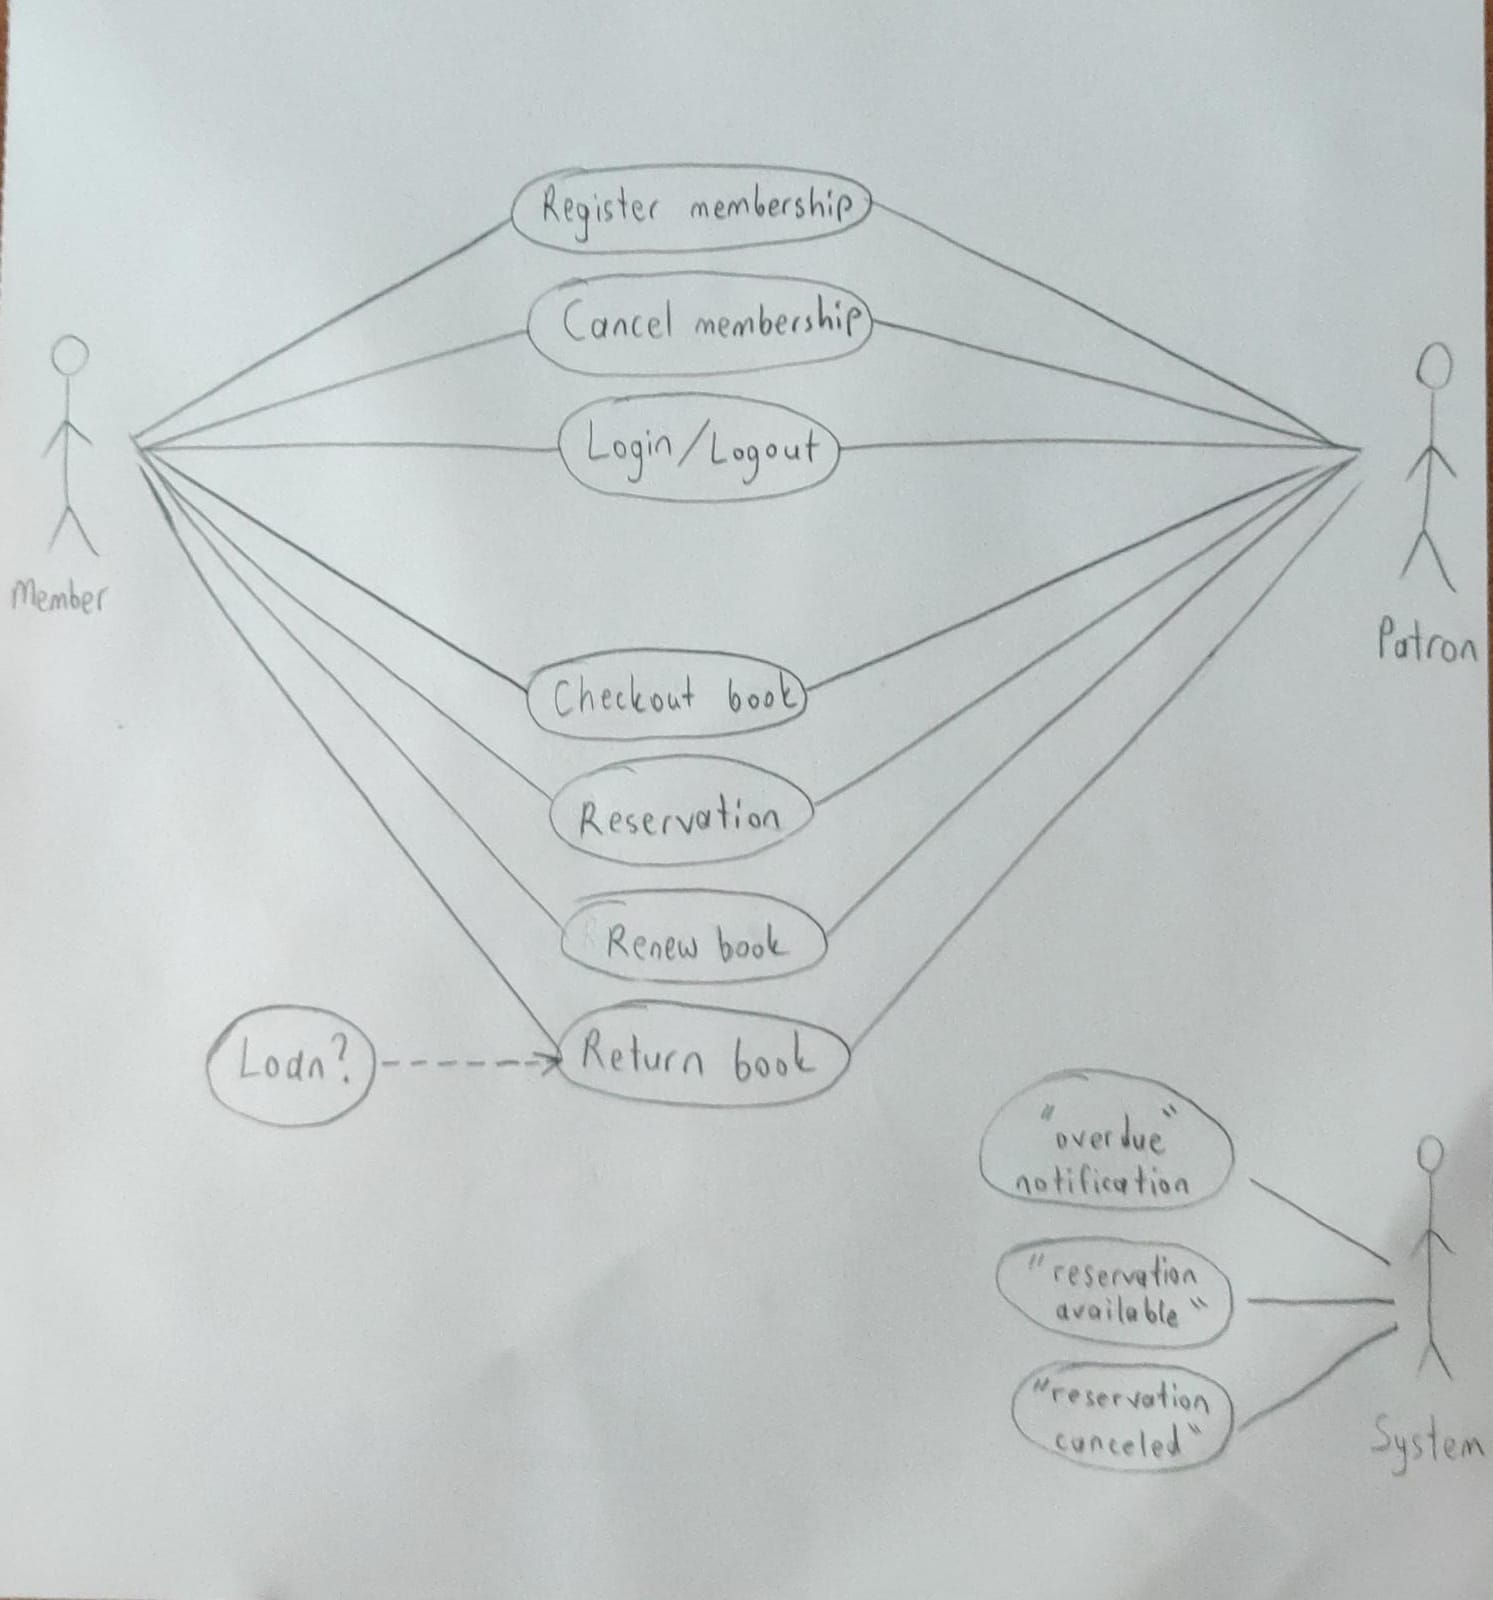 Register membership
Cancel membership
Login/Logout
Member
Patron
Checkout book
Reservation
Renew book
Loan?
Return book
"overdue"
notification
"reservation
available"
"reservation
canceled"
System